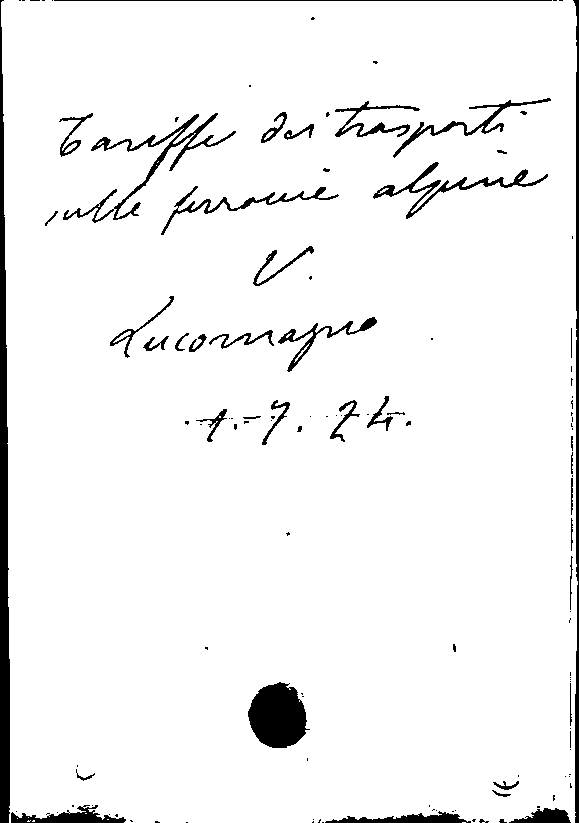 Tariffe dei trasporti
sulle ferrovie alpine
V.
Lucomagno
1.-7. 24.